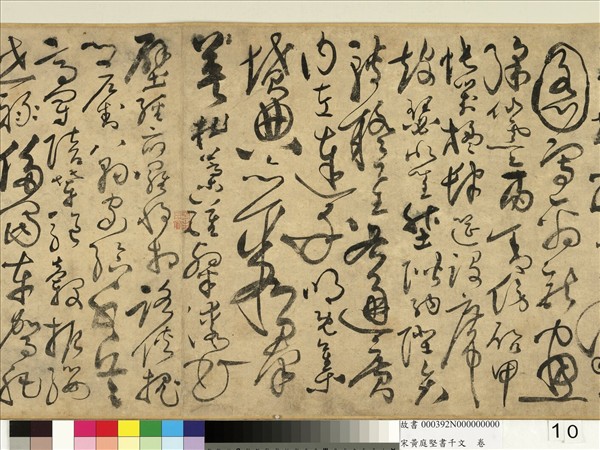 圖寫禽獸畫
彩仙靈丙舍傍啟甲
帳對楹肆筵設席
鼓瑟吹笙陞階納陛弁
轉疑星右通廣
內左達承明既集
墳典亦聚群
英杜稿鍾隸漆書
壁經府羅將相路俠槐
卿戶封八縣家給千兵
高冠陪輦驅轂振纓
世祿侈富車駕肥
故書 000392N000000000
宋黃庭堅書千文 卷
10